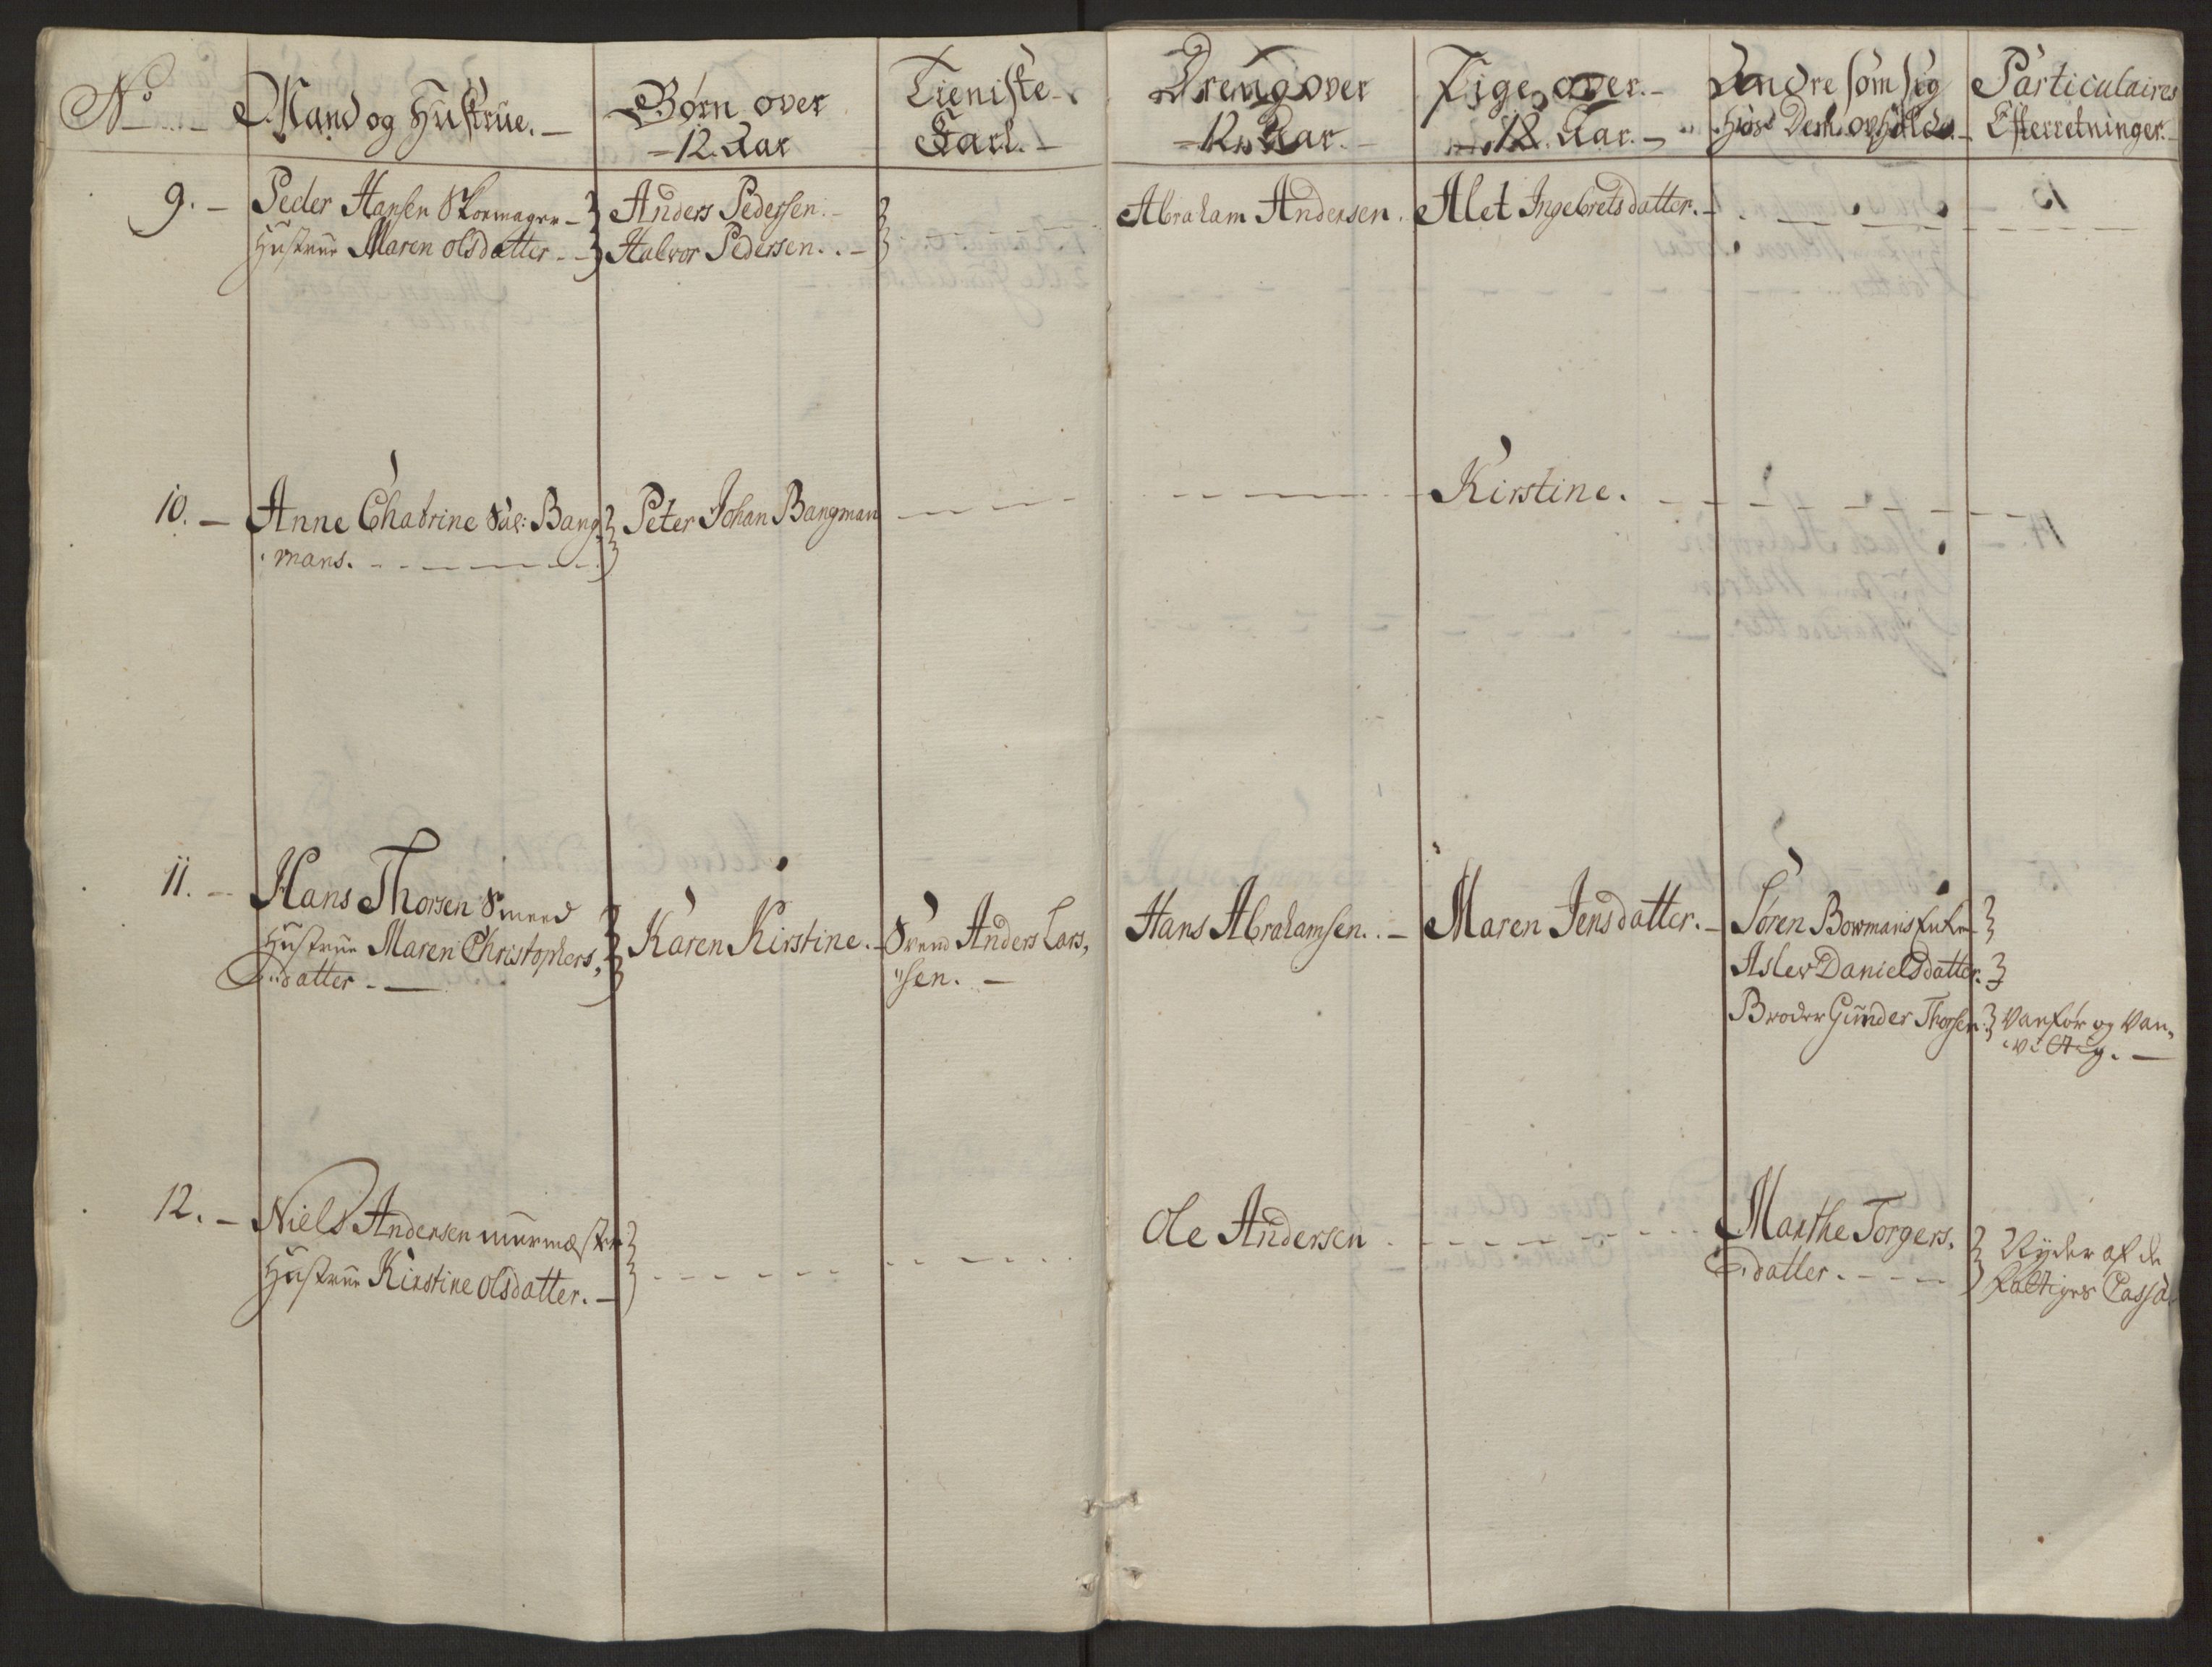 No
Mand og Hustrue.
Børn over
12. Aar
Tieniste
Karl.
Dreng over
12. Aar.
Pige over
12. Aar.
Andre som sig
hos Dem opholder
Particulaires
Efterretninger.
9. Peder Hansen Skomager
Hustrue Maren Olsdatter
Anders Pedersen.
Halvor Pedersen.
Abraham Andersen.
Alet Ingebretsdatter.
10. Anne Chatrine Sal: Bang,
mans.
Peter Johan Bangman
Kirstine.
11. Hans Thorsen Smeed
Hustrue Maren Christophers,
datter
Karen Kirstine.
Svend Anders Lars,
sen.
Hans Abrahamsen.
Maren Jensdatter.
Søren Bowmans Enke
Aslew Danielsdatter.
Broder Gunder Thorsen
Vanför og Van,
vittig.
12. Niels Andersen Murmæster
Hustrue Kirstine Olsdatter.
Ole Andersen
Marthe Torgers,
datter.
Nyder af de
Fattiges Cassa